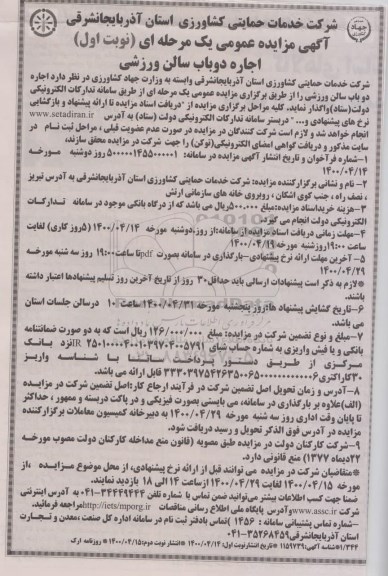 شرکت خدمات حمایتی کشاورزی استان آذربایجانشرقی
آگهی مزایده عمومی یک مرحله ای (نوبت اول)
اجاره دوباب سالن ورزشی
شرکت خدمات حمایتی کشاورزی استان آذربایجانشرقی وابسته به وزارت جهاد کشاورزی در نظر دارد اجاره
دو باب سالن ورزشی را از طریق برگزاری مزایده عمومی یک مرحله ای از طریق سامانه تدارکات الکترونیکی
دولت(ستاد)واگذار نماید. کلیه مراحل برگزاری مزایده از "دریافت اسناد مزایده تا ارائه پیشنهاد و بازگشایی
نرخ های پیشنهادی و... " دربستر سامانه تدارکات الکترونیکی دولت (ستاد) به آدرس www.setadiran.ir
انجام خواهد شد و لازم است شرکت کنندگان در مزایده در صورت عدم عضویت قبلی ، مراحل ثبت نام در
سایت مذکور و دریافت گواهی امضای الکترونیکی(توکن) را جهت شرکت در مزایده محقق سازند.
۱-شماره فراخوان و تاریخ انتشار آگهی مزایده در سامانه: ۵۰۰۰۰۰۱۴۵۵۰۰۰۰۱ روز دوشنبه مورخه
۱۴۰۰/۰۴/۱۴
۲- نام و نشانی برگزارکننده مزایده: شرکت خدمات حمایتی کشاورزی استان آذربایجانشرقی به آدرس تبریز
، نصف راه ، جنب کوی اشکان ، روبروی خانه های سازمانی ارتش
۳-هزینه خریداسناد مزایده:مبلغ ۵۰۰،۰۰۰ریال می باشد که از درگاه بانکی موجود در سامانه تدارکات
الکترونیکی دولت انجام می گیرد.
۴-مهلت زمانی دریافت اسناد مزایده از سامانه:از روز.دوشنبه مورخه ۱۴۰۰/۰۴/۱۴ (۵روز کاری) لغایت
ساعت ۱۹:۰۰روزشنبه مورخه ۱۴۰۰/۰۴/۱۹
۵- آخرین مهلت ارائه نرخ پیشنهادی-بارگذاری در سامانه بصورت pdfتا ساعت۱۹:۰۰ روز سه شنبه مورخه
۱۴۰۰/۰۴/۲۹
*لازم به ذکر است پیشنهادات ارسالی باید حداقل۳۰ روز از تاریخ آخرین روز تسلیم پیشنهادها اعتبار داشته
باشند.
۶-تاریخ گشایش پیشنهاد ها:روز پنجشنبه مورخه ۱۴۰۰/۰۴/۳۱ ساعت ۱۰ درسالن جلسات استان
می باشد.
۷-مبلغ و نوع تضمین شرکت در مزایده: مبلغ ۱۲۶/۰۰۰/۰۰۰ ریال است که به دو صورت ضمانتنامه
بانکی و یا فیش واریزی به شماره حساب شبای
مرکزی از طریق دستور پرداخت ساتنا با شناسه واریز
۳۰کاراکتری
۸-آدرس و زمان تحویل اصل تضمین شرکت در فرآیند ارجاع کار:اصل تضمین شرکت در مزایده
(الف)علاوه بر بارگذاری در سامانه، می بایستی بصورت فیزیکی و در پاکت دربسته و ممهور ، حداکثر
تا پایان وقت اداری روز سه شنبه مورخه ۱۴۰۰/۰۴/۲۹ به دبیرخانه کمیسیون معاملات برگزارکننده
مزایده در آدرس فوق الذکر تحویل و رسید دریافت شود.
۹-شرکت کارکنان دولت در مزایده طبق مصوبه (قانون منع مداخله کارکنان دولت مصوب مورخه
۲۲دیماه ۱۳۷۷) منع قانونی دارد.
*متقاضیان شرکت در مزایده می توانند قبل از ارائه نرخ پیشنهادی، از محل موضوع مزایده ،از
مورخه ۱۴۰۰/۰۴/۱۵ لغایت ۱۴۰۰/۰۴/۲۹ ازساعت ۱۴ الی ۱۸ بازدید نمایند.
ضمنا جهت کسب اطلاعات بیشتر می‌توانید ضمن تماس با شماره تلفن ۳۴۴۴۹۴۴۴-۰۴۱ به آدرس اینترنتی
شرکت www.assc.ir وآدرس پایگاه ملی اطلاع رسانی مناقصات http://iets/mporg.ir مراجعه فرمائید.
-شماره تماس پشتیبانی سامانه : ۱۴۵۶ )تماس بادفتر ثبت نام در سامانه اداره کل صنعت ،معدن و تجارت
استان آذربایجانشرقی۳۵۲۶۸۴۵۹-۰۴۱
۱/۳۴۴ *شناسه آگهی: ۱۱۵۹۲۳۹ *تاریخ انتشار نوبت اول: ۱۴۰۰/۰۴/۱۴ *انتشار نوبت دوم: ۱۴۰۰/۰۴/۱۵ *روزنامه ارک